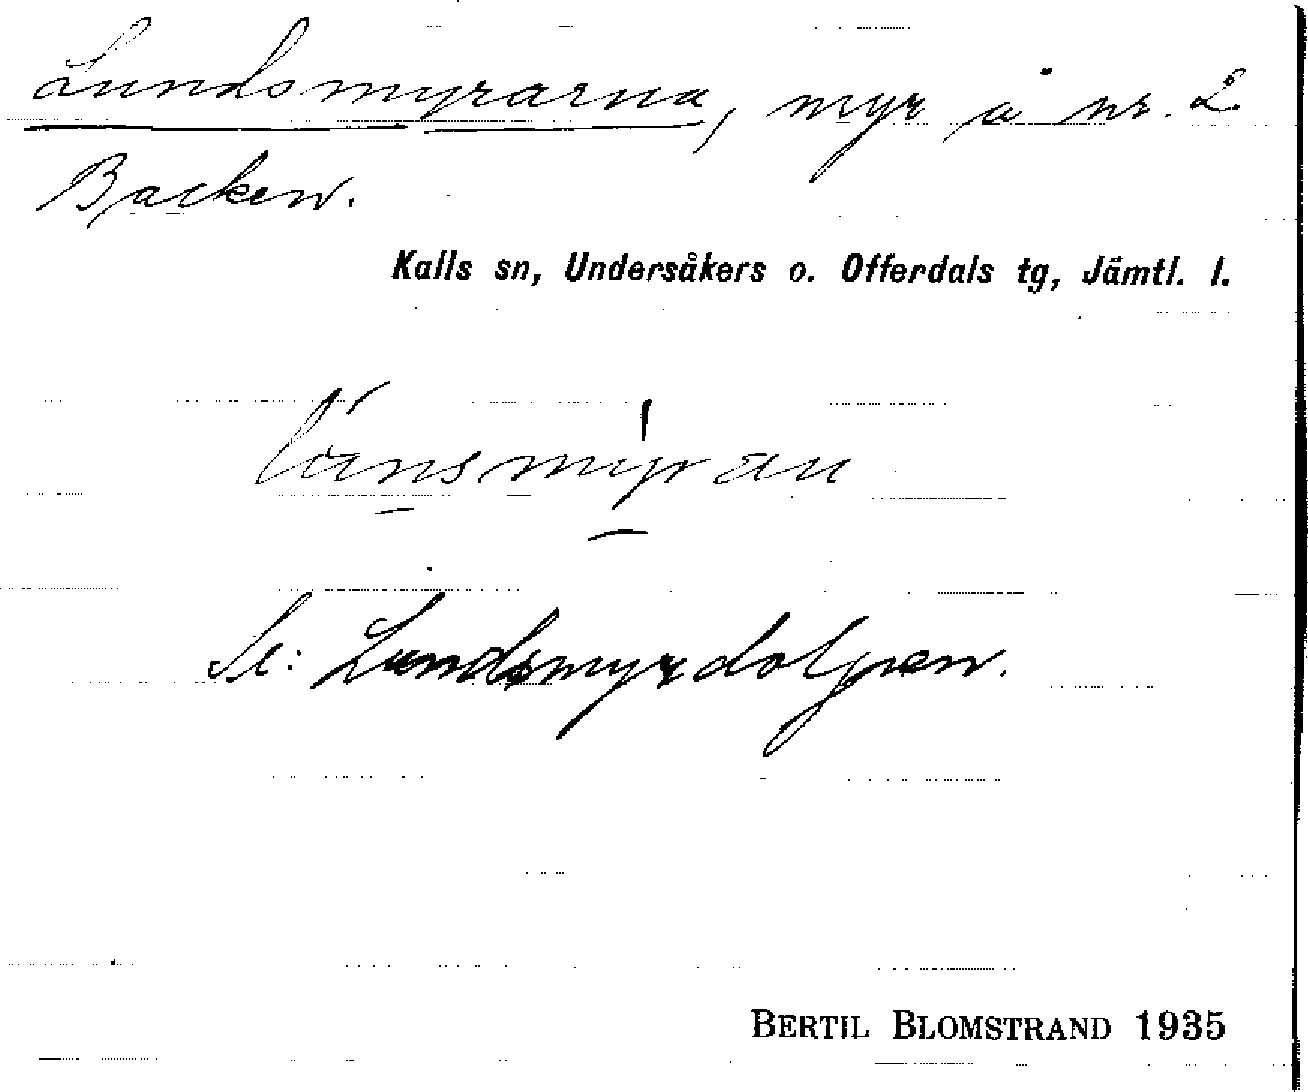 Lundsmyrarna, myr å nr. 2
Backen.
Kalls sn, Undersåkers o. Offerdals tg, Jämtl. l.
Se: Lundsmyrdaljen.
BERTIL BLOMSTRAND 1935